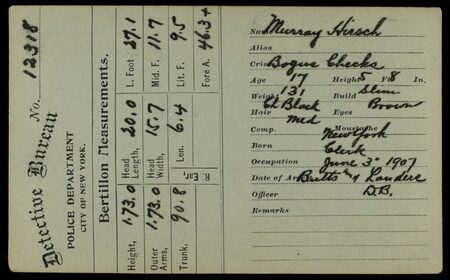 Detective Bureau No. 12318
POLICE DEPARTMENT
CITY OF NEW YORK.
Bertillon Measurements.
Height, 1.73.0 Head Length, 20.0 L. Foot 27.1
Outer Arms, 1.73.0 Head Width, 15.7 Mid. F. 11.7
Trunk, 90.8 R. Ear, Len. 6.4 Lit. F. 9.5
Fore A. 46.3+
Name Murray Hirsch
Alias
Crime Bogus Checks
Age 17 Height 5 F 8 In.
Weight 131 Build Slim
Hair Ch Black Eyes Brown
Comp. Med Moustache
Born New York
Occupation Clerk
Date of Arrest June 3" 1907
Officer Butts and Landers
D.B.
Remarks